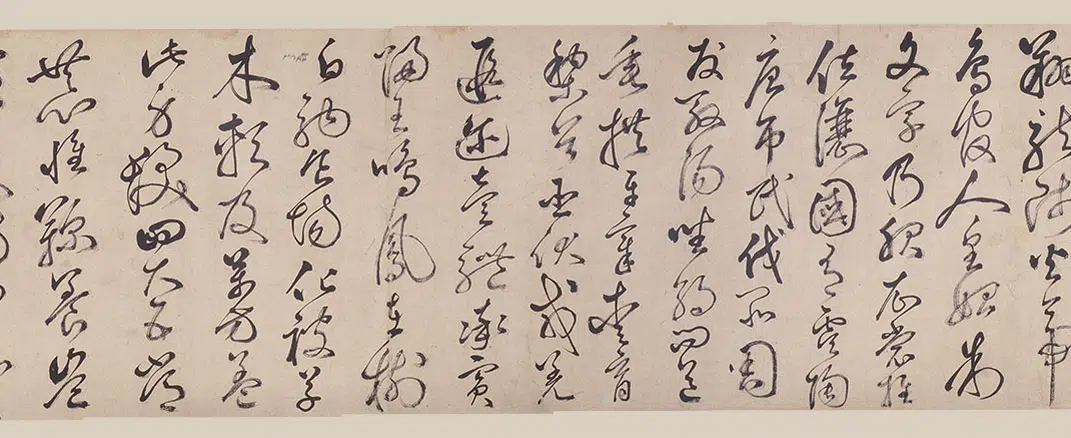 翔龍師火帝
鳥官人皇始制
文字乃服衣裳推
位讓國有虞陶
唐弔民伐罪周
發殷湯坐朝問道
垂拱平章愛育
黎首臣伏戎羌
遐邇壹體率賓
歸王鳴鳳在樹
白駒食場化被草
木賴及萬方蓋
此身髮四大五常
恭惟鞠養豈